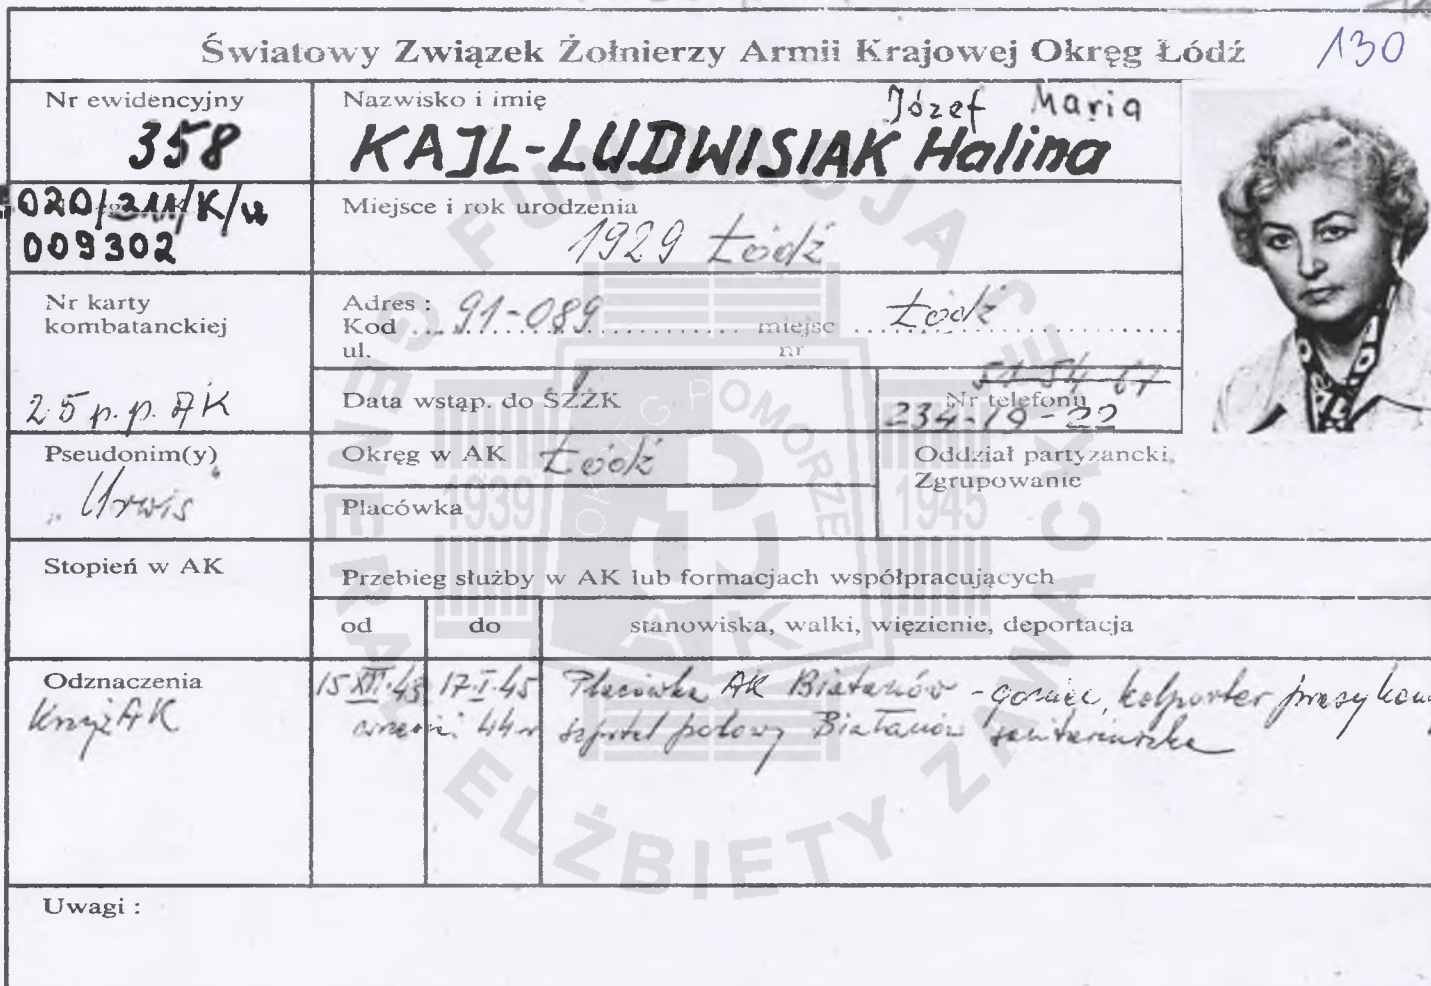 Światowy Związek Żołnierzy Armii Krajowej Okręg Łódź 130
Nr ewidencyjny
358
Nazwisko i imię
Józef Maria
KAJL-LUDWISIAK Halina
020/211/K/u
009302
Miejsce i rok urodzenia
1929 Łódź
Nr karty
kombatanckiej
25 p.p. AK
Adres :
Kod 91-089 miejsc Łódź
ul. nr
Data wstąp. do ŚZŻK
51-54-67
Nr telefonu
234-19-22
Pseudonim(y)
"Urwis"
Okręg w AK Łódź
Placówka
Oddział partyzancki,
Zgrupowanie
Stopień w AK
Przebieg służby w AK lub formacjach współpracujących
od do stanowiska, walki, więzienie, deportacja
Odznaczenia
Krzyż AK
15 XII.43 17.I.45 Placówka AK Białanów - goniec, kolporter prasy
44 r szpital polowy Białanów sanitariuszka
Uwagi :
FUNDACJA GENERAŁ ELŻBIETY ZAWACKIEJ
OKRĘG POMORZE
1939 1945
AK